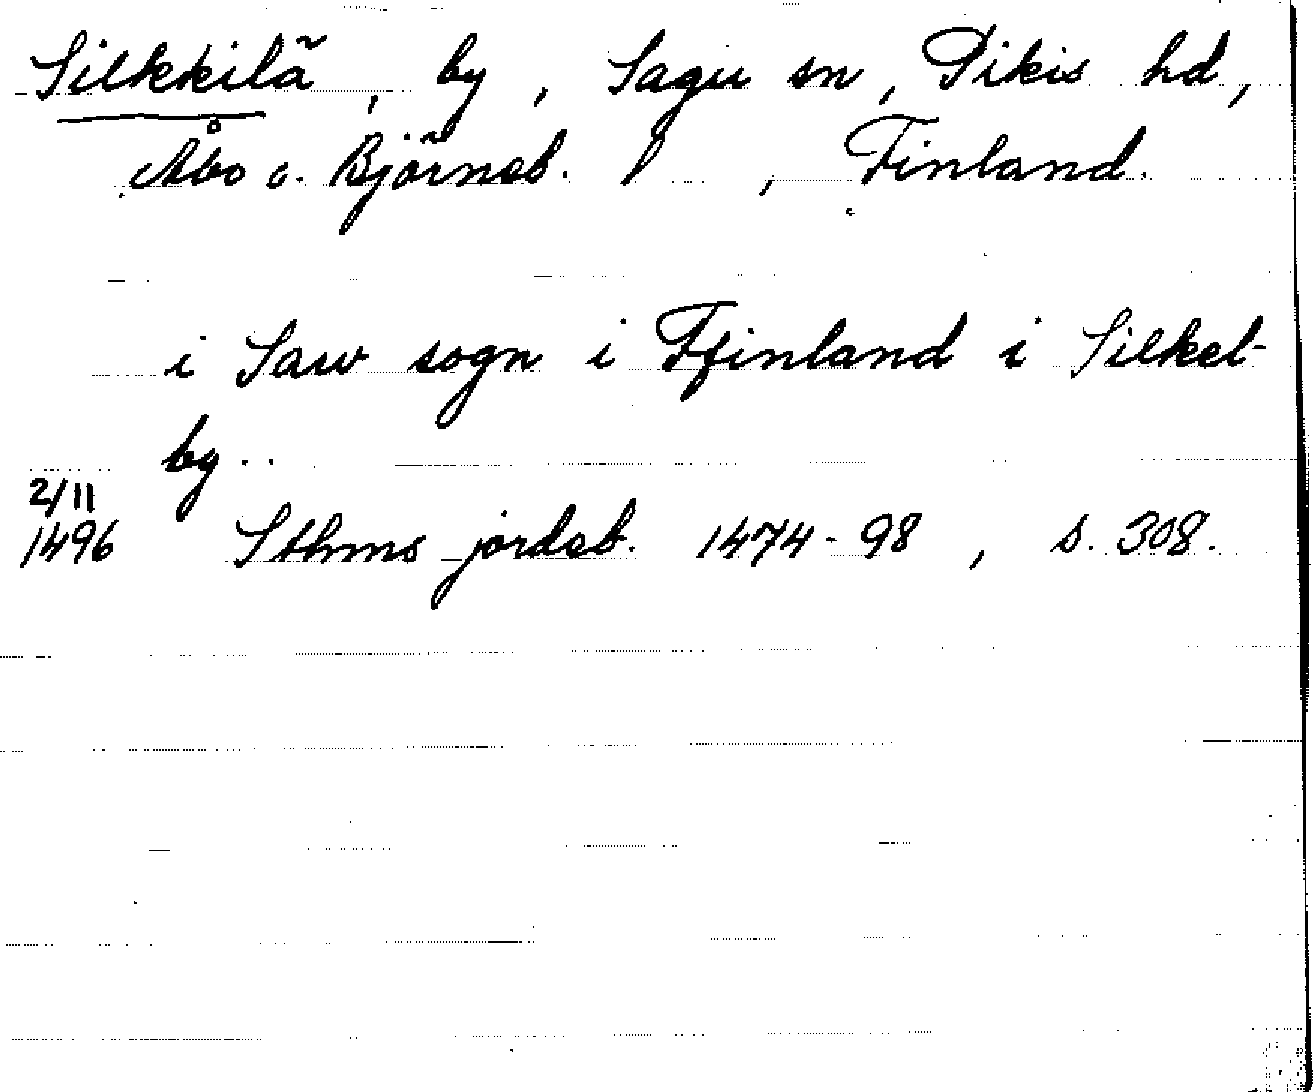 Silkkilä, by, Sagu sn, Pikis hd,
Åbo o. Björneb. l, Finland.
i Saw sogn i Ffinland i Silkel-
by..
2/11
1496 Sthms jordeb. 1474-98, s. 308.